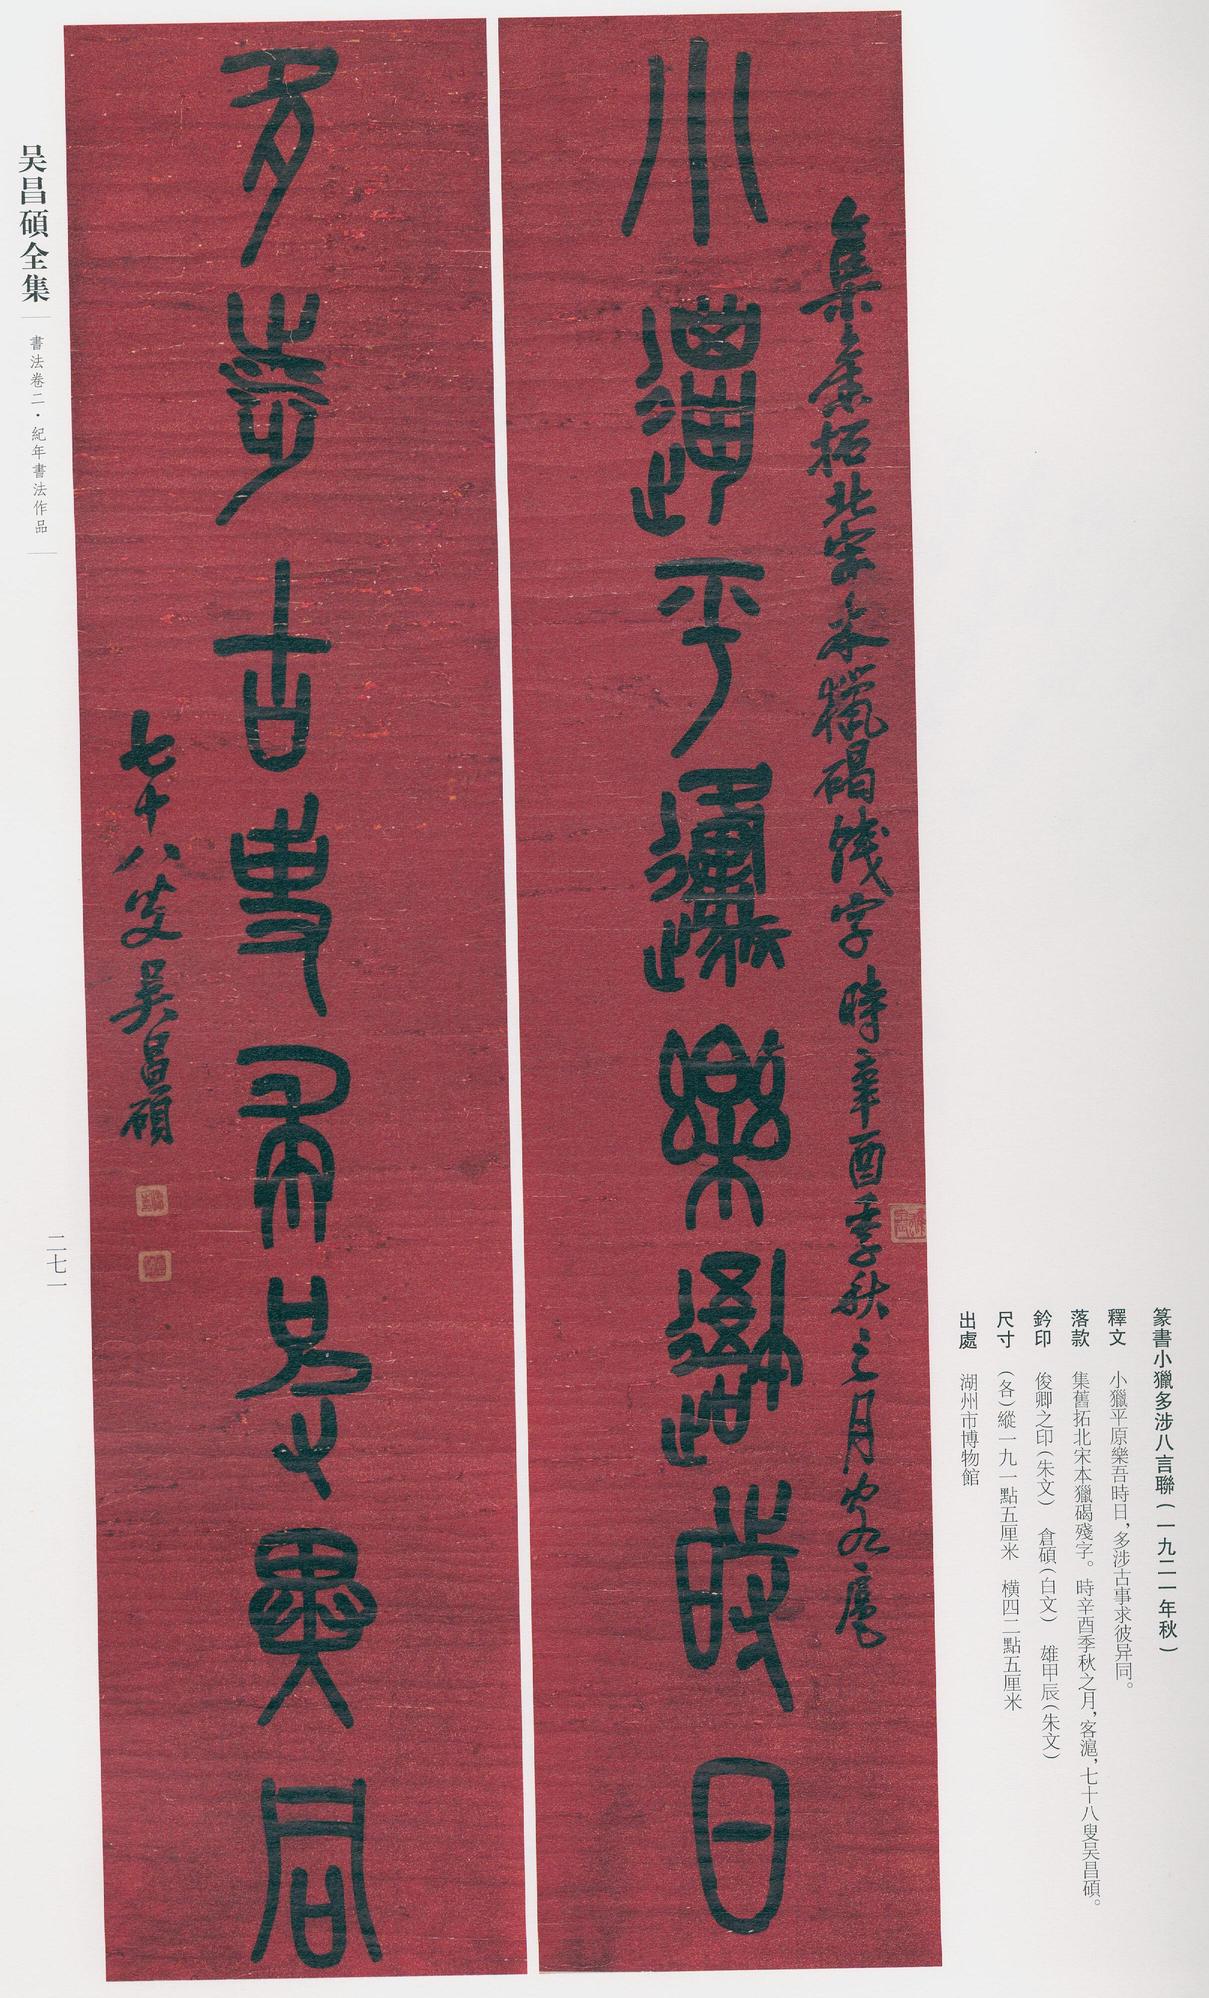 小獵平原樂吾時日
集舊拓北宋本獵碣殘字時辛酉季秋之月客滬
多涉古事求彼異同
七十八叟吳昌碩
篆書小獵多涉八言聯(一九二一年秋)
釋文 小獵平原樂吾時日,多涉古事求彼异同。
落款 集舊拓北宋本獵碣殘字。時辛酉季秋之月,客滬,七十八叟吴昌碩。
鈐印 俊卿之印(朱文) 倉碩(白文) 雄甲辰(朱文)
尺寸 (各)縱一九一點五厘米 横四二點五厘米
出處 湖州市博物館
吴昌碩全集
書法卷二·紀年書法作品
二七一